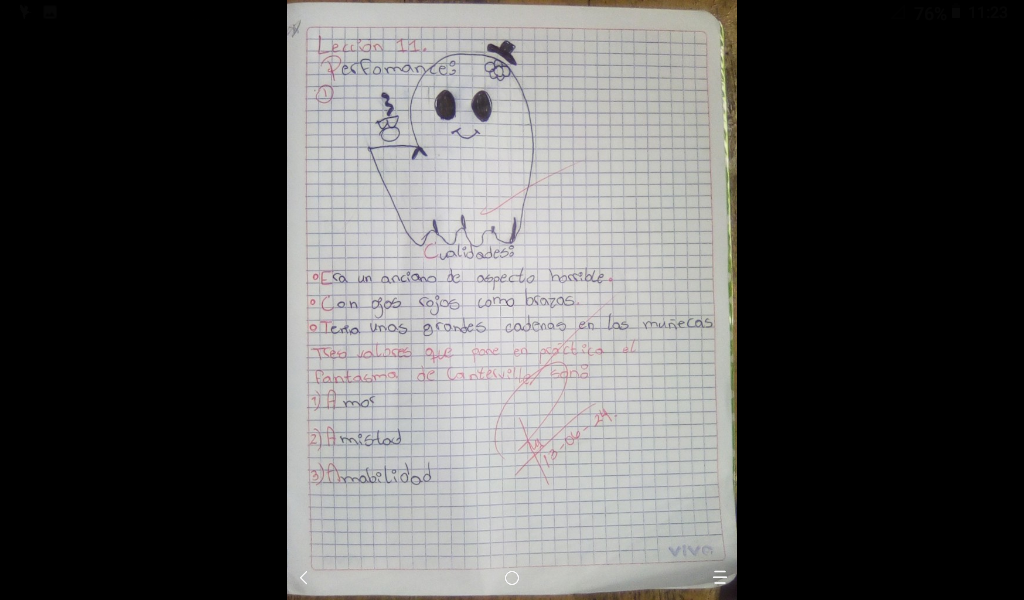 76% 11:23
Lección 11.
Perfomance:
1
Cualidades:
Era un anciano de aspecto horrible.
Con ojos rojos como brazas.
Tenia unas grandes cadenas en las muñecas
Tres valores que pone en práctica el
fantasma de Canterville, son:
1) Amor
2) Amistad
3) Amabilidad
13-06-24
vivo